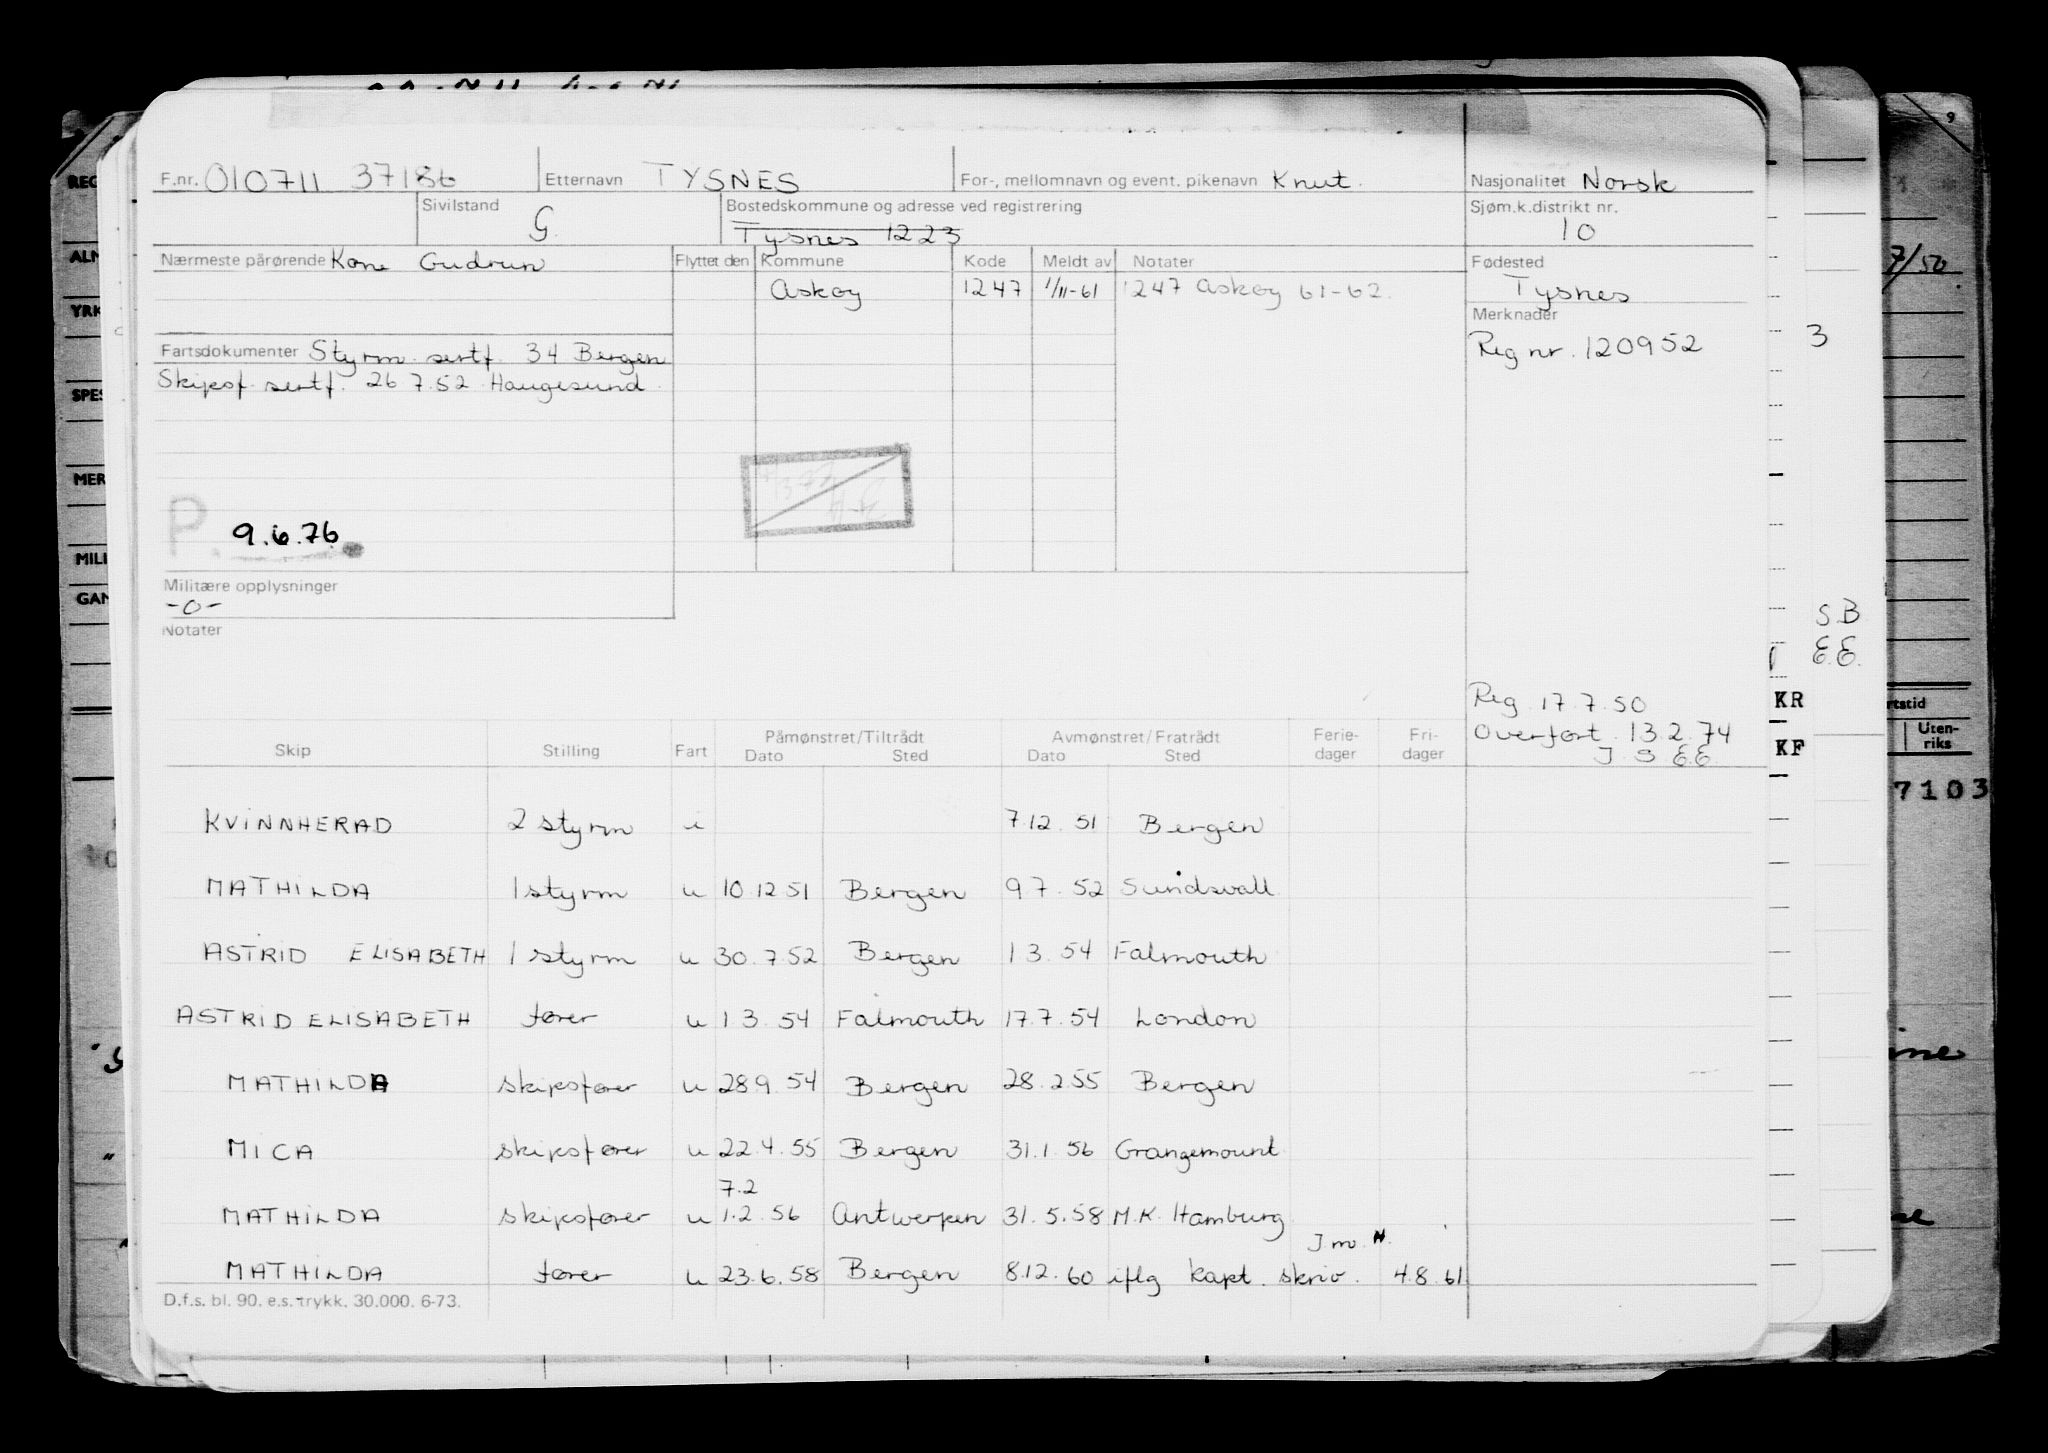 F.nr. 010711 37186 Etternavn TYSNES For-, mellomnavn og event. pikenavn Knut. Nasjonalitet Norsk
Sivilstand G. Bostedskommune og adresse ved registrering Tysnes 1223 Sjøm.k.distrikt nr. 10
Nærmeste pårørende Kone Gudrun Flyttet den Kommune Kode Meldt av Notater Fødested
Askøy 1247 1/11-61 1247 Askøy 61-62. Tysnes
Merknader
Fartsdokumenter Styrm. sertf. 34 Bergen Reg nr. 120952
Skipsf. sertf. 26.7.52 Haugesund
P. 9.6.76
Militære opplysninger
-0-
Notater
Reg. 17.7.50
Overført. 13.2.74
J.S. E.E.
Skip Stilling Fart Påmønstret/Tiltrådt Avmønstret/Fratrådt Ferie- Fri-
Dato Sted Dato Sted dager dager
KVINNHERAD 2 styrm u 7.12.51 Bergen
MATHILDA 1 styrm u 10.12.51 Bergen 9.7.52 Sundsvall
ASTRID ELISABETH 1 styrm u 30.7.52 Bergen 1.3.54 Falmouth
ASTRID ELISABETH fører u 1.3.54 Falmouth 17.7.54 London
MATHILDA skipsfører u 28.9.54 Bergen 28.2.55 Bergen
MICA skipsfører u 22.4.55 Bergen 31.1.56 Grangemount
7.2
MATHILDA skipsfører u 1.2.56 Antwerpen 31.5.58 M.K. Hamburg
MATHILDA fører u 23.6.58 Bergen 8.12.60 iflg kapt. skriv. 4.8.61
D.f.s. bl. 90. e.s. trykk. 30.000. 6-73.
REG
YRK
SPES
MER
MILI
7/50
3
S.B
E.E.
KR
KF
Uten-
riks
7103